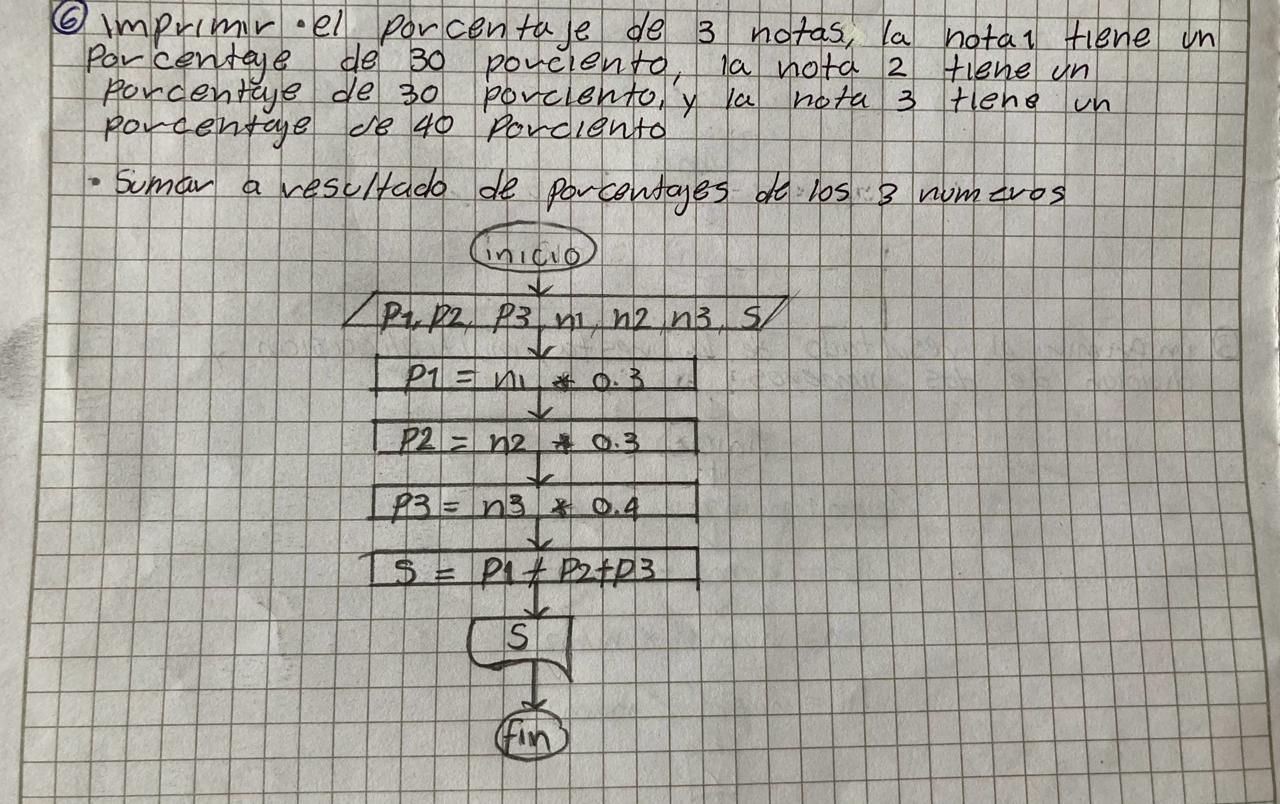 6 Imprimir el porcentaje de 3 notas, la nota1 tiene un
porcentaje de 30 porciento, la nota 2 tiene un
porcentaje de 30 porciento, y la nota 3 tiene un
porcentaje de 40 Porciento
• Sumar a resultado de porcentajes de los 3 numeros
inicio
P1, P2, P3, n1, n2, n3, S
P1 = n1 * 0.3
P2 = n2 * 0.3
P3 = n3 * 0.4
S = P1 + P2+P3
S
fin